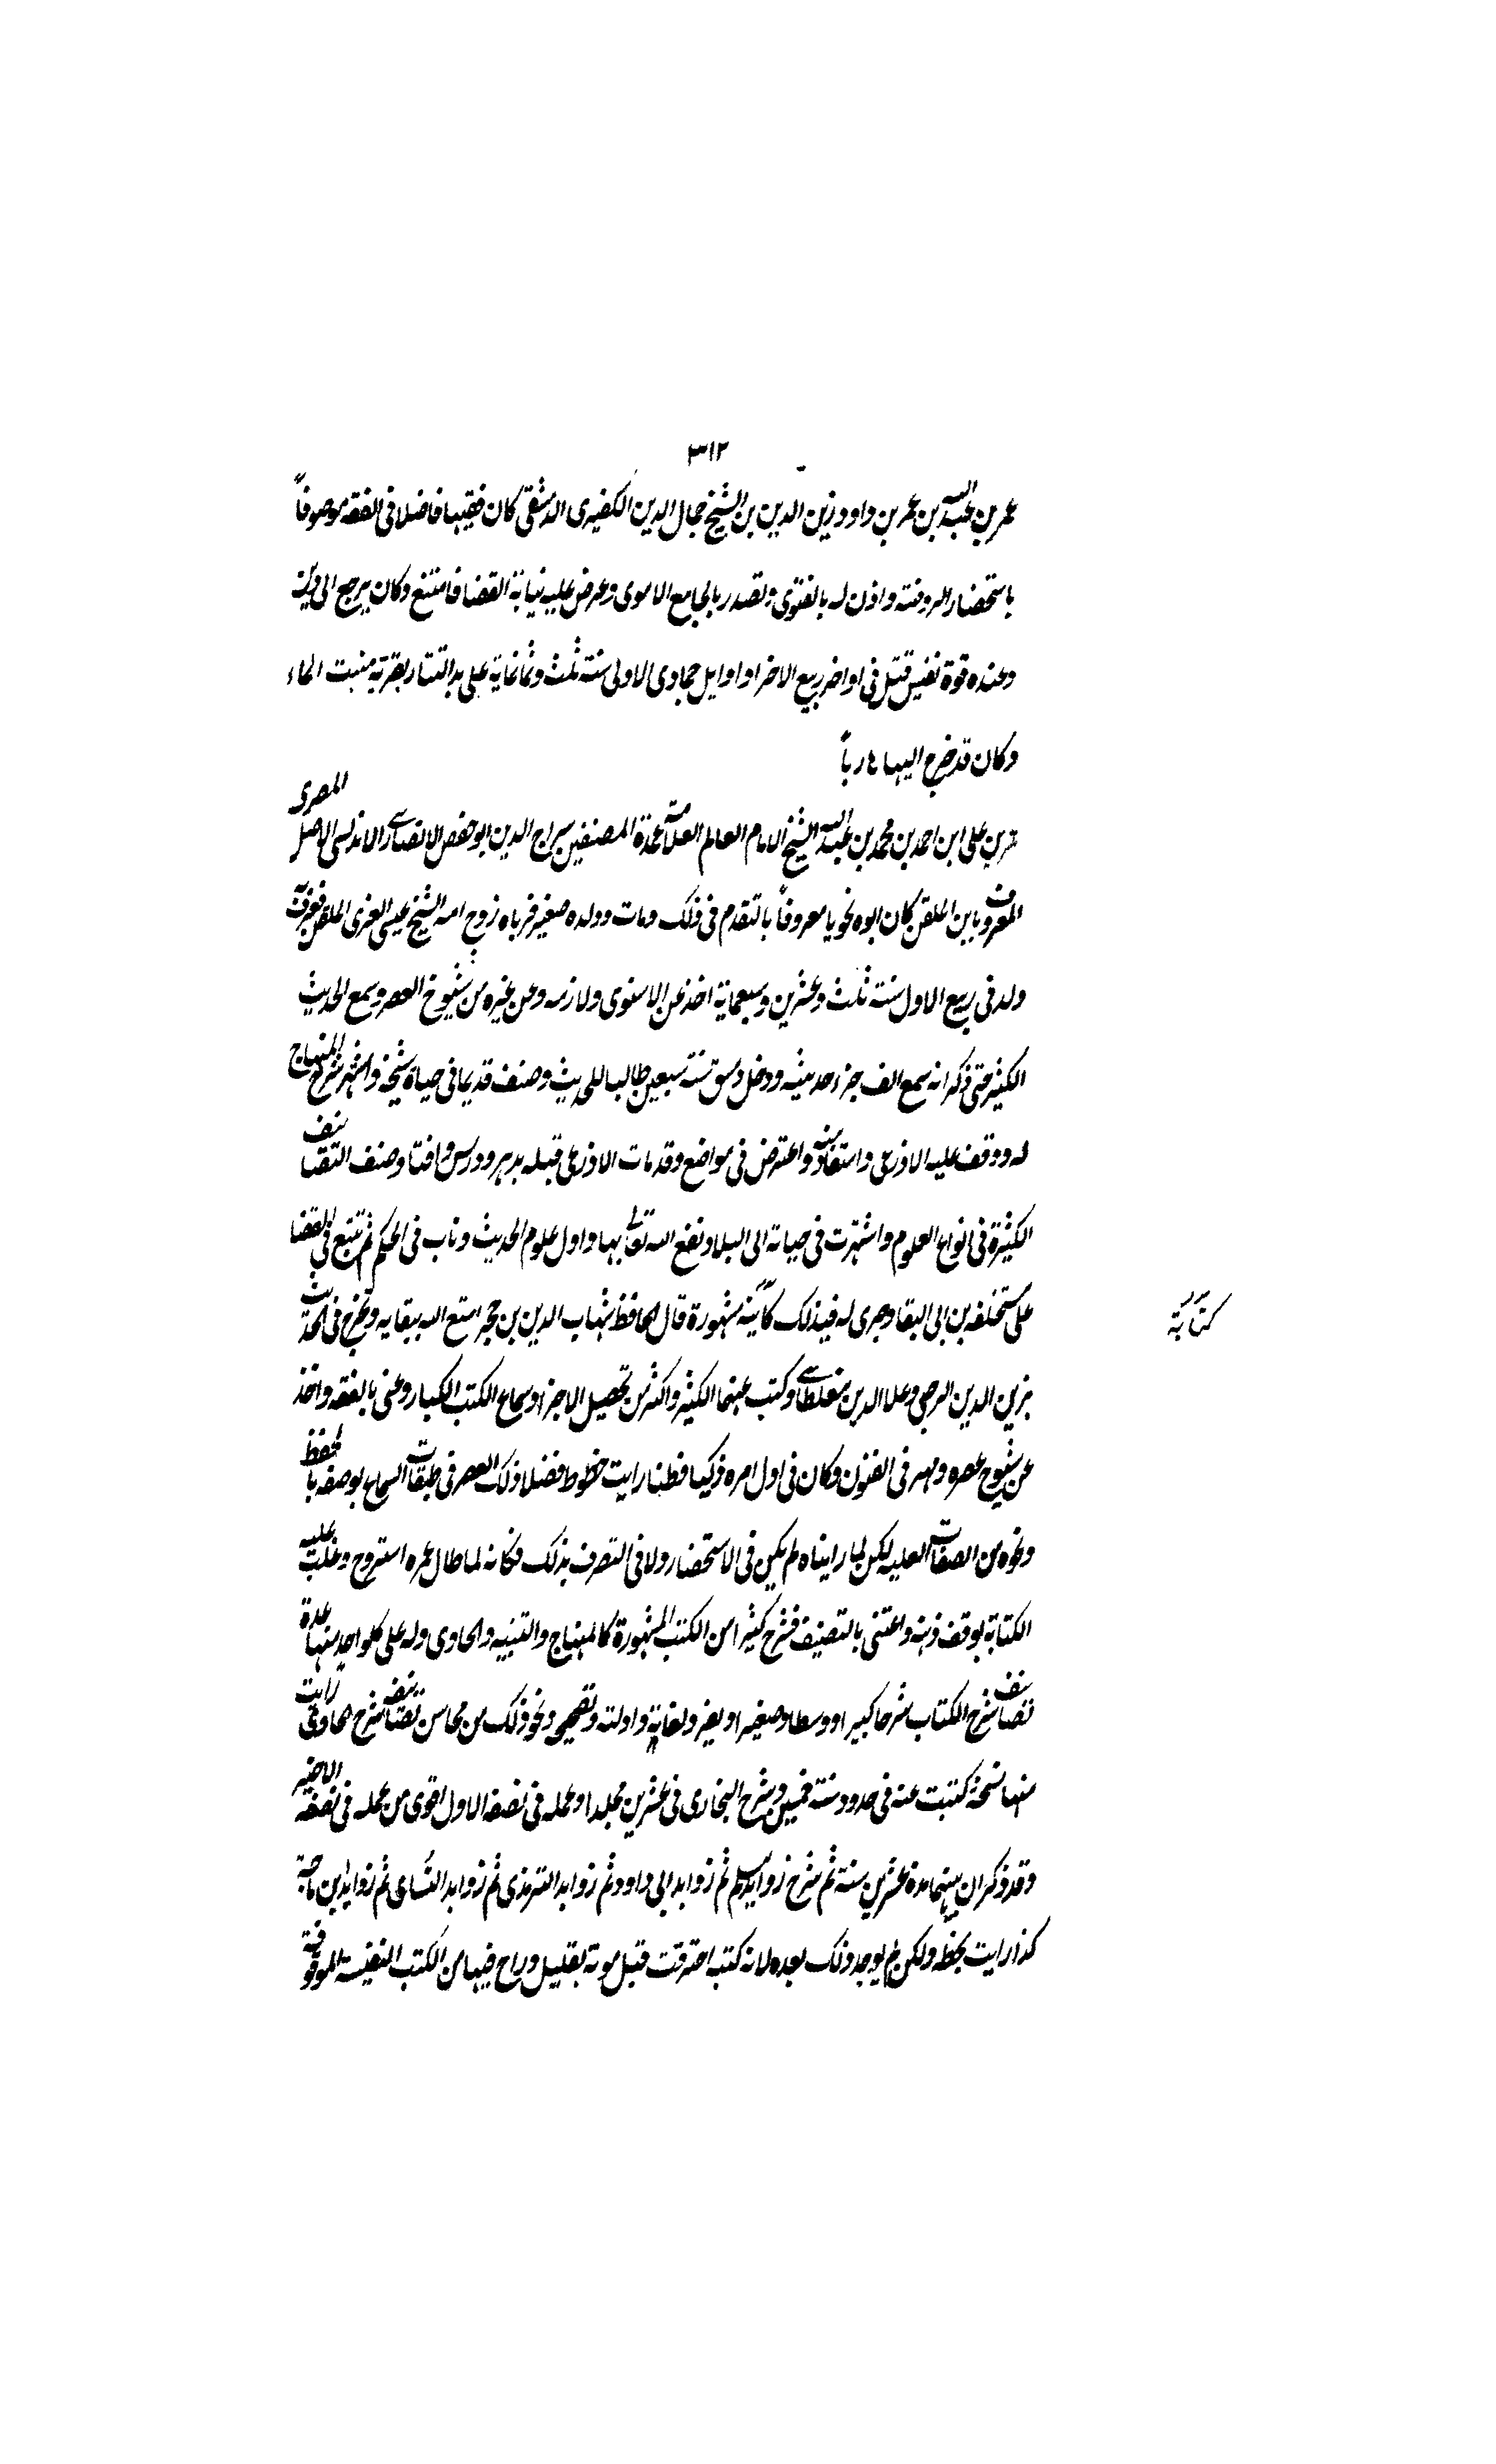 ٣١٢
عمر بن عبد الله بن عمر بن داود زين الدين بن الشيخ جمال الدين الكفيرى الدمشقى كان فقيها فاضلا فى الفقه موصوفاً
باستحضار الروضة واذن له بالفتوى وتصدر بالجامع الاموى وعرض عليه نيابة القضا فامتنع وكان يرجع الى دين
وعنده قوة نفس قتل فى اواخر ربيع الاخر او اوايل جمادى الاولى سنة ثلث وثمانماية على يد التتار بقرية منبت الماء
وكان قد خرج اليها هارباً
عمر بن على ابن احمد بن محمد بن عبد الله الشيخ الامام العالم العلامة عمدة المصنفين سراج الدين ابو حفص الانصارى الاندلسى الاصل المصرى
المعروف بابن الملقن كان ابوه نحويا معروفاً بالتقدم فى ذلك ومات وولده صغير فرباه زوج امه الشيخ عيسى المغربى الملقن فعرف به
ولد فى ربيع الاول سنة ثلث وعشرين وسبعماية اخذ عن الاسنوى ولازمه وعن غيره من شيوخ العصر وسمع الحديث
الكثير حتى ذكر انه سمع الف جزء حديثيه ودخل دمشق سنة سبعين طالبا للحديث وصنف قديما فى حياة شيخه واشتهر شرح المنهاج
له ووقف عليه الاذرعى واستفاد منه واعترض فى مواضع وقد مات الاذرعى قبله بدهر ودرس وافتا وصنف التصانيف
الكثيرة فى انواع العلوم واشتهرت فى حياته الى البلاد ونفع الله تعالى بها واول علوم الحديث وناب فى الحكم ثم تتبع فى القضا
على مستخلفه بن ابى البقا وجرى له فيذلك كاينة مشهورة قال الحافظ شهاب الدين بن حجر امتع الله ببقايه وتخرج فى الحديث
بزين الدين الرحبى وعلا الدين مغلطاى وكتب عنهما الكثير واكثر من تحصيل الاجزا وسماع الكتب الكبار وعنى بالفقه واخذ
عن شيوخ عصره ومهر فى الفنون وكان فى اول امره ذكيا فطنا رايت خطوط فضلا ذلك العصر فى طبقات السماع بوصفه بالحفظ
ونحوه من الصفات العليه لكن لما رايناه لم يكن فى الاستحضار ولا فى التصرف بذلك فكانه لما طال عمره استروح وغلبت عليه
الكتابة فوقف ذهنه واعتنى بالتصنيف فشرح كثيرا من الكتب المشهورة كالمنهاج والتنبيه والحاوى وله على كلواحد منها عدة
تصانيف شرح الكتاب شرحا كبيرا ووسطا وصغيرا ولغزه ولغاته وادلته وتصحيحه ونحو ذلك من محاسن تصانيفه شرح الحاوى رايت
منها نسخة كتبت عنه فى حدود سنة خمسين وشرح البخارى فى عشرين مجلدا وعمله فى نصفه الاول اقوى من عمله فى نصفه الاخير
وقد ذكر ان بينهما مدة عشرين سنة ثم شرح زوايد مسلم ثم زوايد ابى داود ثم زوايد الترمذى ثم زوايد النساى ثم زوايد ابن ماجة
كذا رايت بخطه ولكن لم يوجد ذلك بعده لانه كتبه احترقت قبل موته بقليل وراح فيها من الكتب النفيسة الموقوفة
كتابة